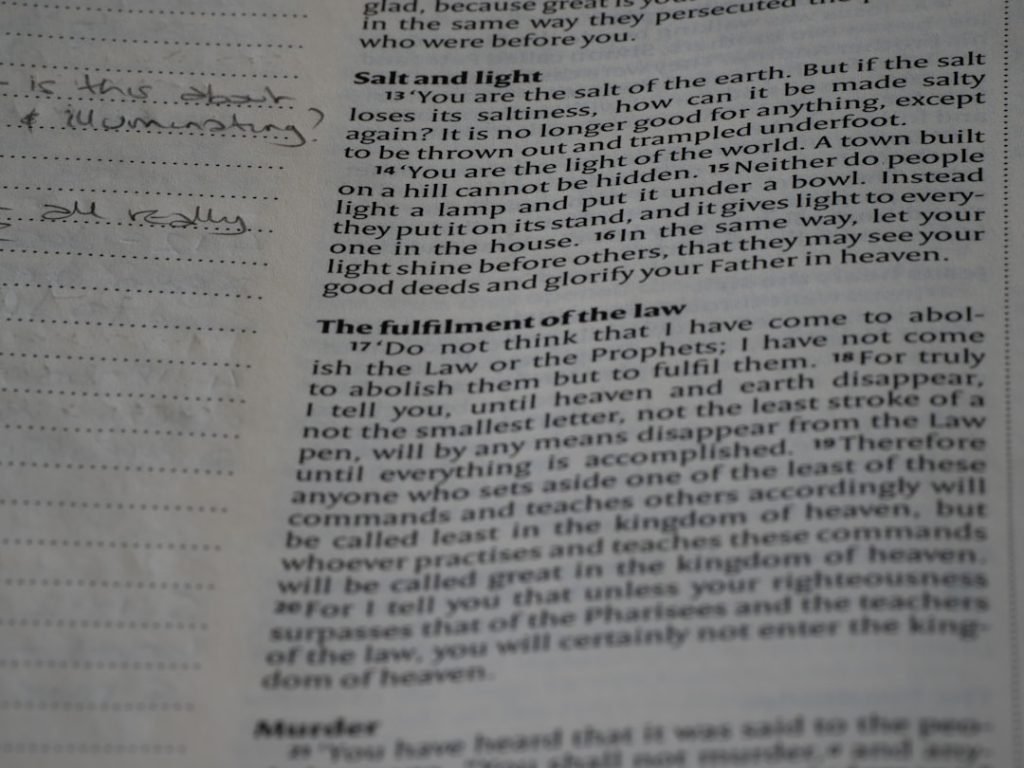 is this about
& illuminating?
all really
glad, because great is
in the same way they persecuted the
who were before you.
Salt and light
13 ‘You are the salt of the earth. But if the salt
loses its saltiness, how can it be made salty
again? It is no longer good for anything, except
to be thrown out and trampled underfoot.
14 ‘You are the light of the world. A town built
on a hill cannot be hidden. 15 Neither do people
light a lamp and put it under a bowl. Instead
they put it on its stand, and it gives light to every-
one in the house. 16 In the same way, let your
light shine before others, that they may see your
good deeds and glorify your Father in heaven.
The fulfilment of the law
17 ‘Do not think that I have come to abol-
ish the Law or the Prophets; I have not come
to abolish them but to fulfil them. 18 For truly
I tell you, until heaven and earth disappear,
not the smallest letter, not the least stroke of a
pen, will by any means disappear from the Law
until everything is accomplished. 19 Therefore
anyone who sets aside one of the least of these
commands and teaches others accordingly will
be called least in the kingdom of heaven, but
whoever practises and teaches these commands
will be called great in the kingdom of heaven.
20 For I tell you that unless your righteousness
surpasses that of the Pharisees and the teachers
of the law, you will certainly not enter the king-
dom of heaven.
Murder
21 ‘You have heard that it was said to the peo-
“You shall not murder, and any-